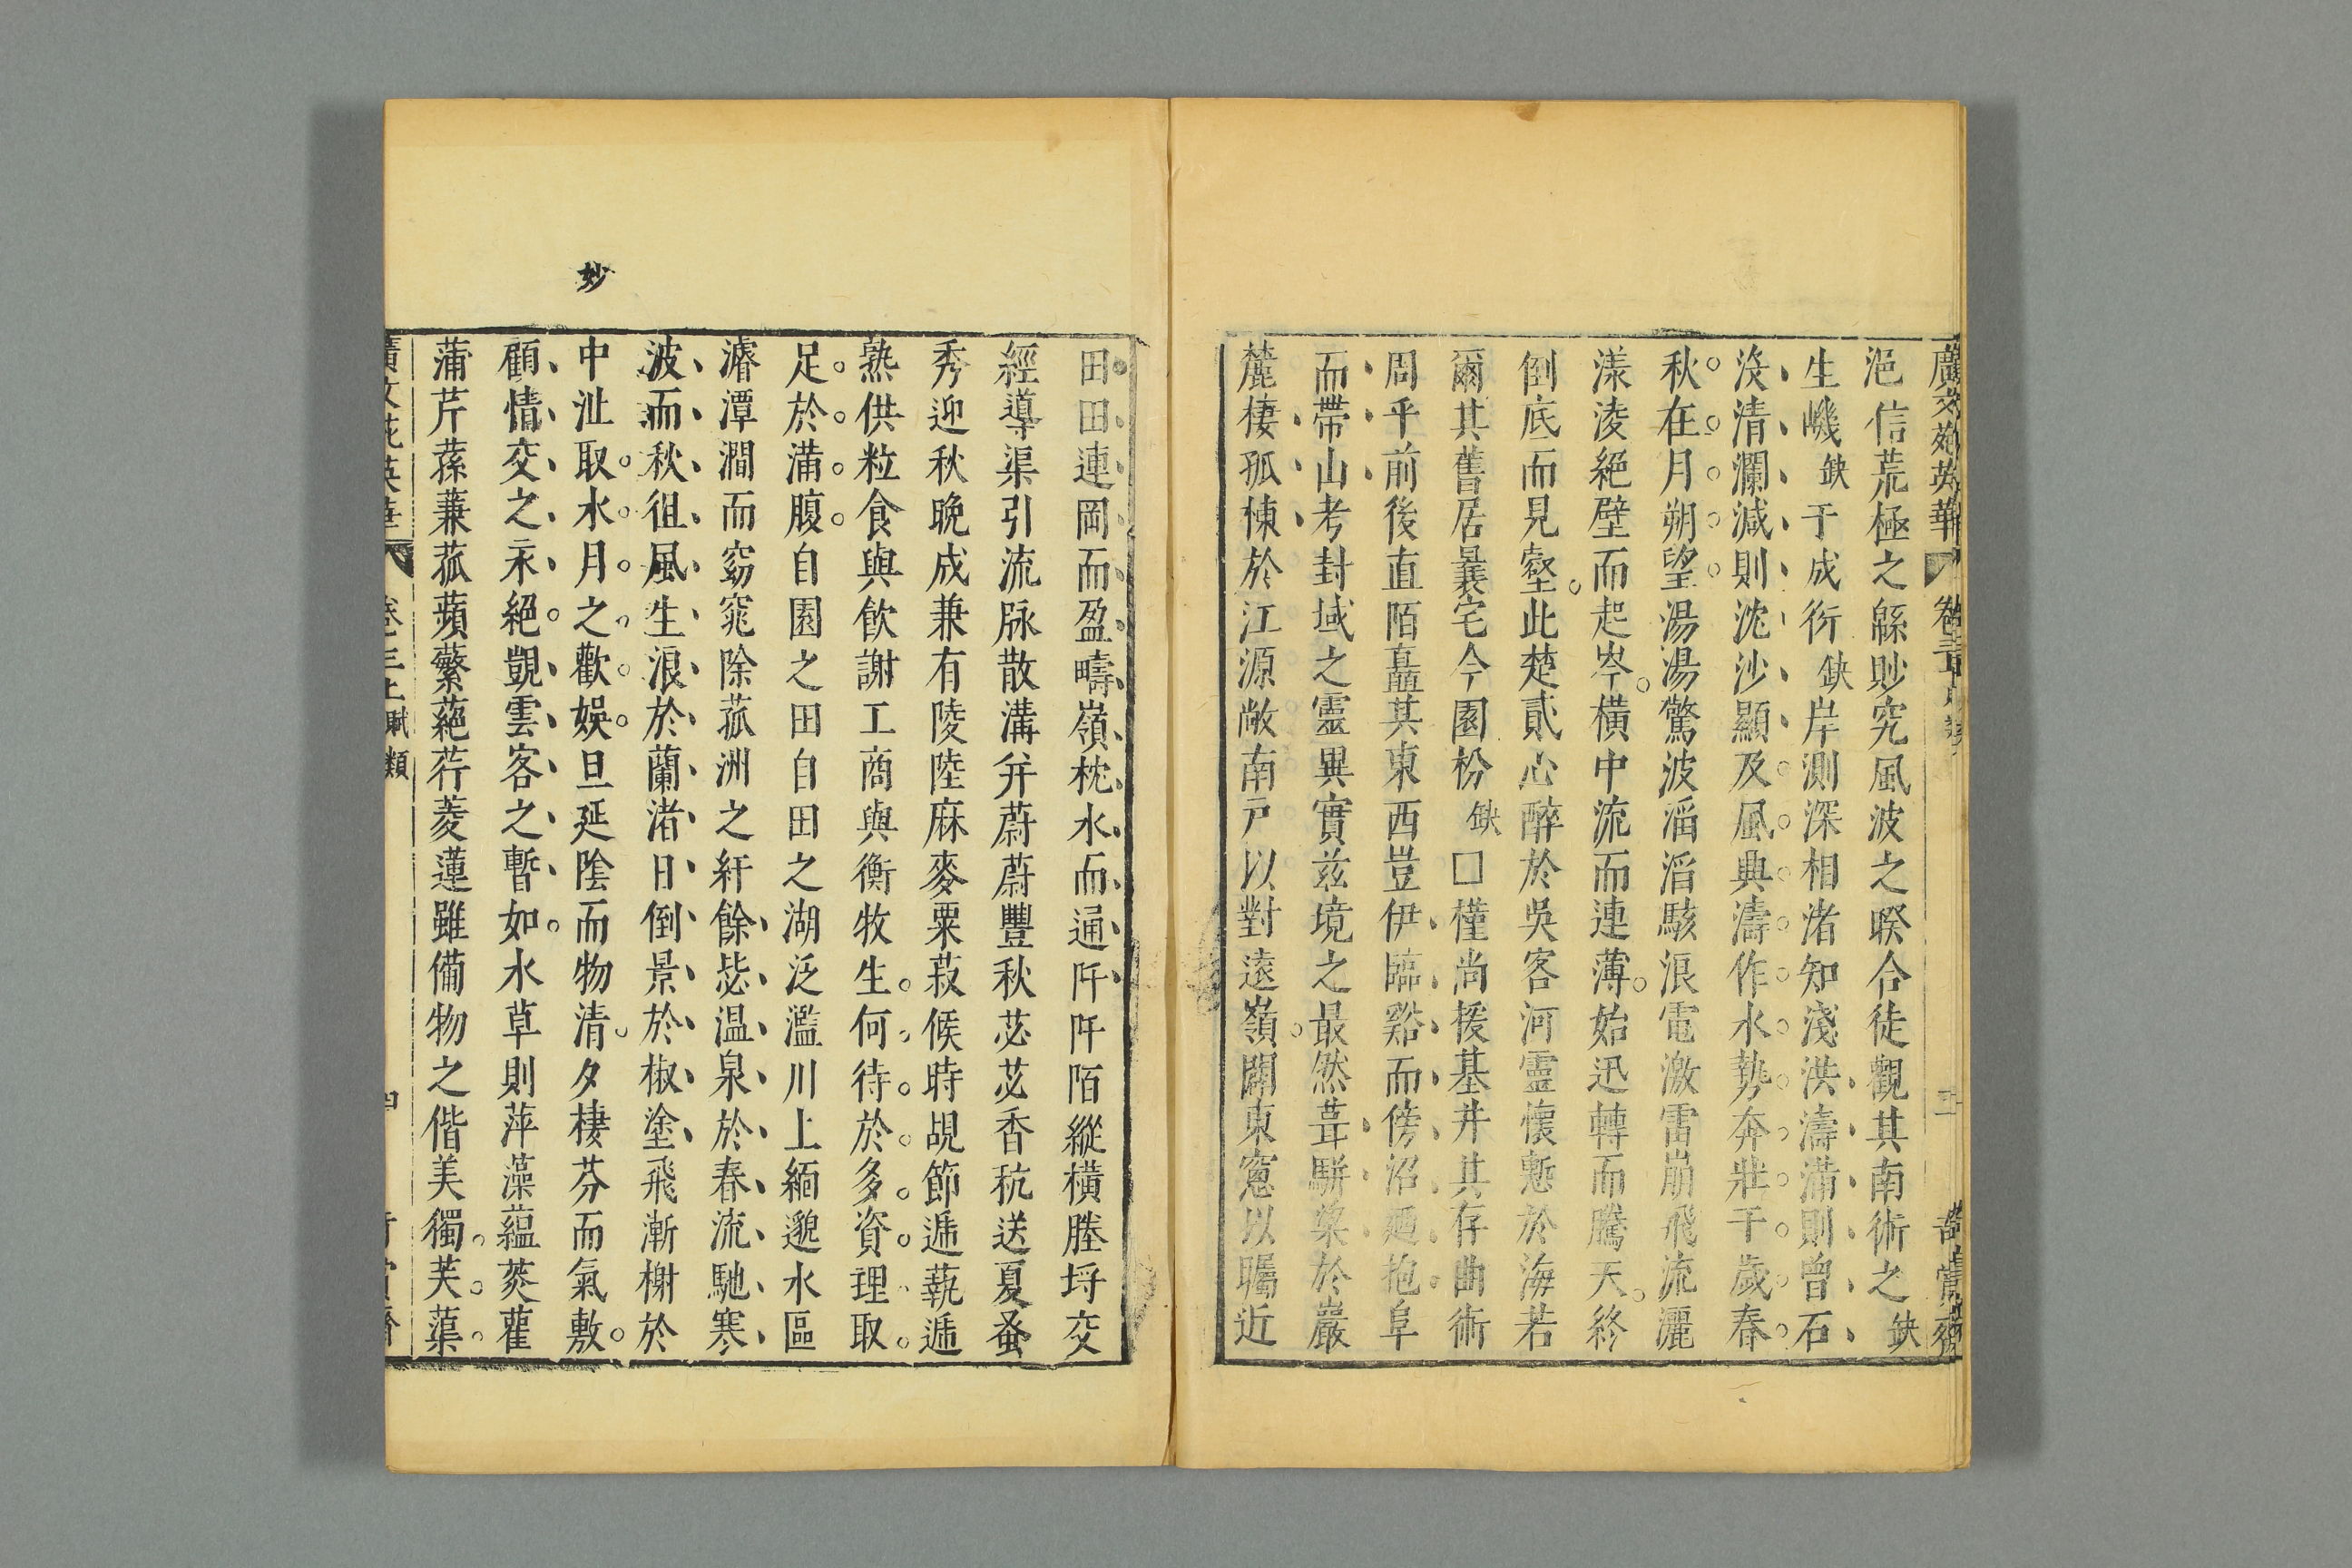 廣文苑英華
浥信荒極之緜眇究風波之睽合徒觀其南術之缺
生巇缺于成衍缺岸測深相渚知淺洪濤滿則曾石
没清瀾減則沈沙顯及風興濤作水勢奔壯于歲春
秋在月朔望湯湯驚波滔滔駭浪電激雷崩飛流灑
漾淩絕壁而起岑横中流而連薄始迅轉而騰天終
倒底而見壑此楚貳心醉於吳客河靈懷慙於海若
爾其舊居曩宅今園枌缺□槿尚援基井其存曲術
周乎前後直陌矗其東西豈伊臨谿而傍沼廼抱阜
而帶山考封域之靈異實茲境之最然葺駢梁於巖
麓棲孤棟於江源敞南戸以對遠嶺闢東窻以矚近
田田連岡而盈疇嶺枕水而通阡阡陌縱横塍埒交
經導渠引流脉散溝并蔚蔚豐秋苾苾香秔送夏蚤
秀迎秋晚成兼有陵陸麻麥粟菽候時覘節遞蓺遞
熟供粒食與飲謝工商與衡牧生何待於多資理取
足於滿腹自園之田自田之湖泛濫川上緬邈水區
濬潭澗而窈窕除菰洲之紆餘毖温泉於春流馳寒
波而秋徂風生浪於蘭渚日倒景於椒塗飛漸榭於
中沚取水月之歡娛旦延陰而物清夕棲芬而氣敷
顧情交之永絕覬雲客之暫如水草則萍藻蕰菼雚
蒲芹蓀蒹菰蘋蘩蕝荇菱蓮雖備物之偕美獨芙蕖
妙
廣文苑英華
卷三上賦類
四